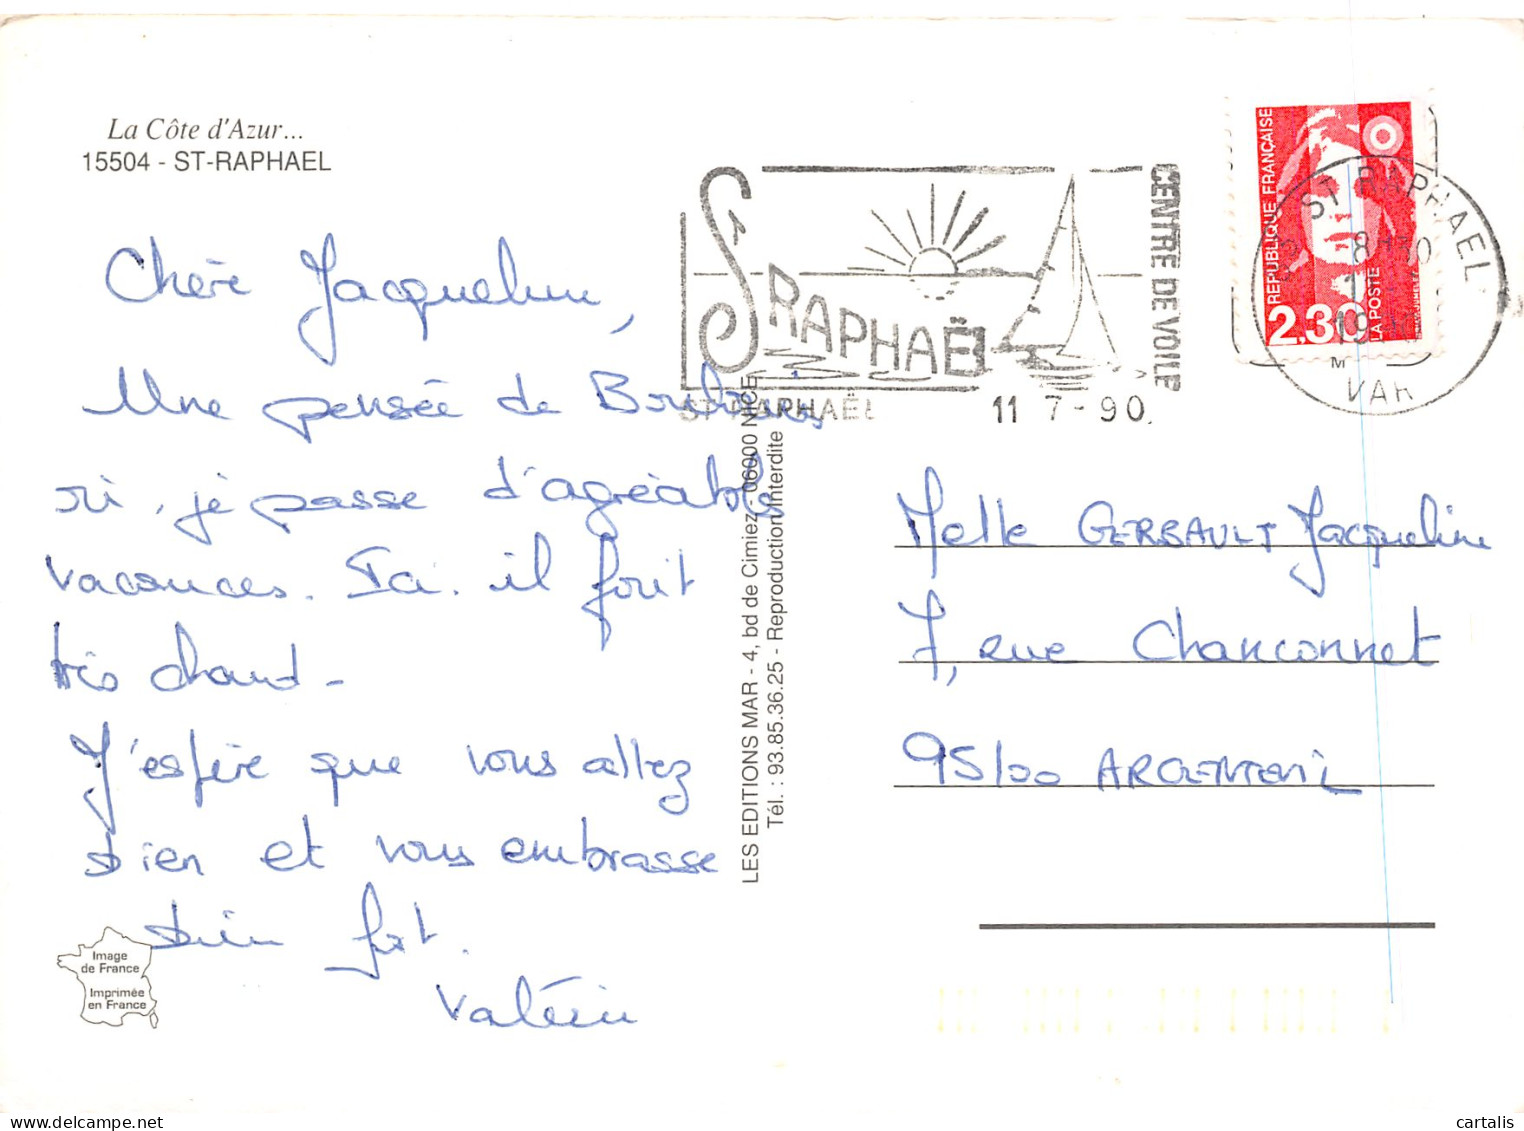 La Côte d'Azur...
15504 - ST-RAPHAEL
Chère Jacqueline,
Une pensée de
ri, je passe d'agréables
vacances. Ici. il fait
très chaud -
J'espère que vous allez
bien et vous embrasse
bien fort.
Valérie
Image
de France
Imprimée
en France
LES EDITIONS MAR - 4, bd de Cimiez - 06000 NICE
Tél. : 93.85.36.25 - Reproduction interdite
ST RAPHAËL
CENTRE DE VOILE
ST-RAPHAËL 11 7-90.
REPUBLIQUE FRANÇAISE
2,30
LA POSTE
ST RAPHAEL
VAR
Melle GERBAULT Jacqueline
7, rue Chanconnet
95100 ARGENTEUIL
cartalis